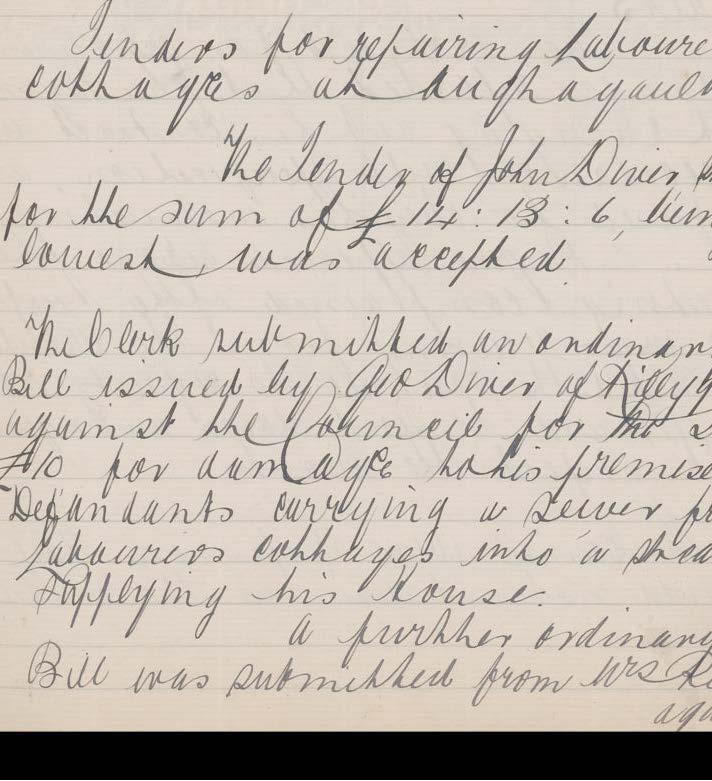 Tenders for repairing Laboure
cottages at Aughagaul
The Tender of John Diver
for the sum of £14:13:6,
lowest was accepted.
The Clerk submitted an ordinary
Bill issued by Geo Diver of Killyg
against the Council for the
£10 for damage to his premise
Defandants carrying a sewer
Labourers cottages into a strea
supplying his House.
a further ordinary
Bill was submitted from Mrs
aga